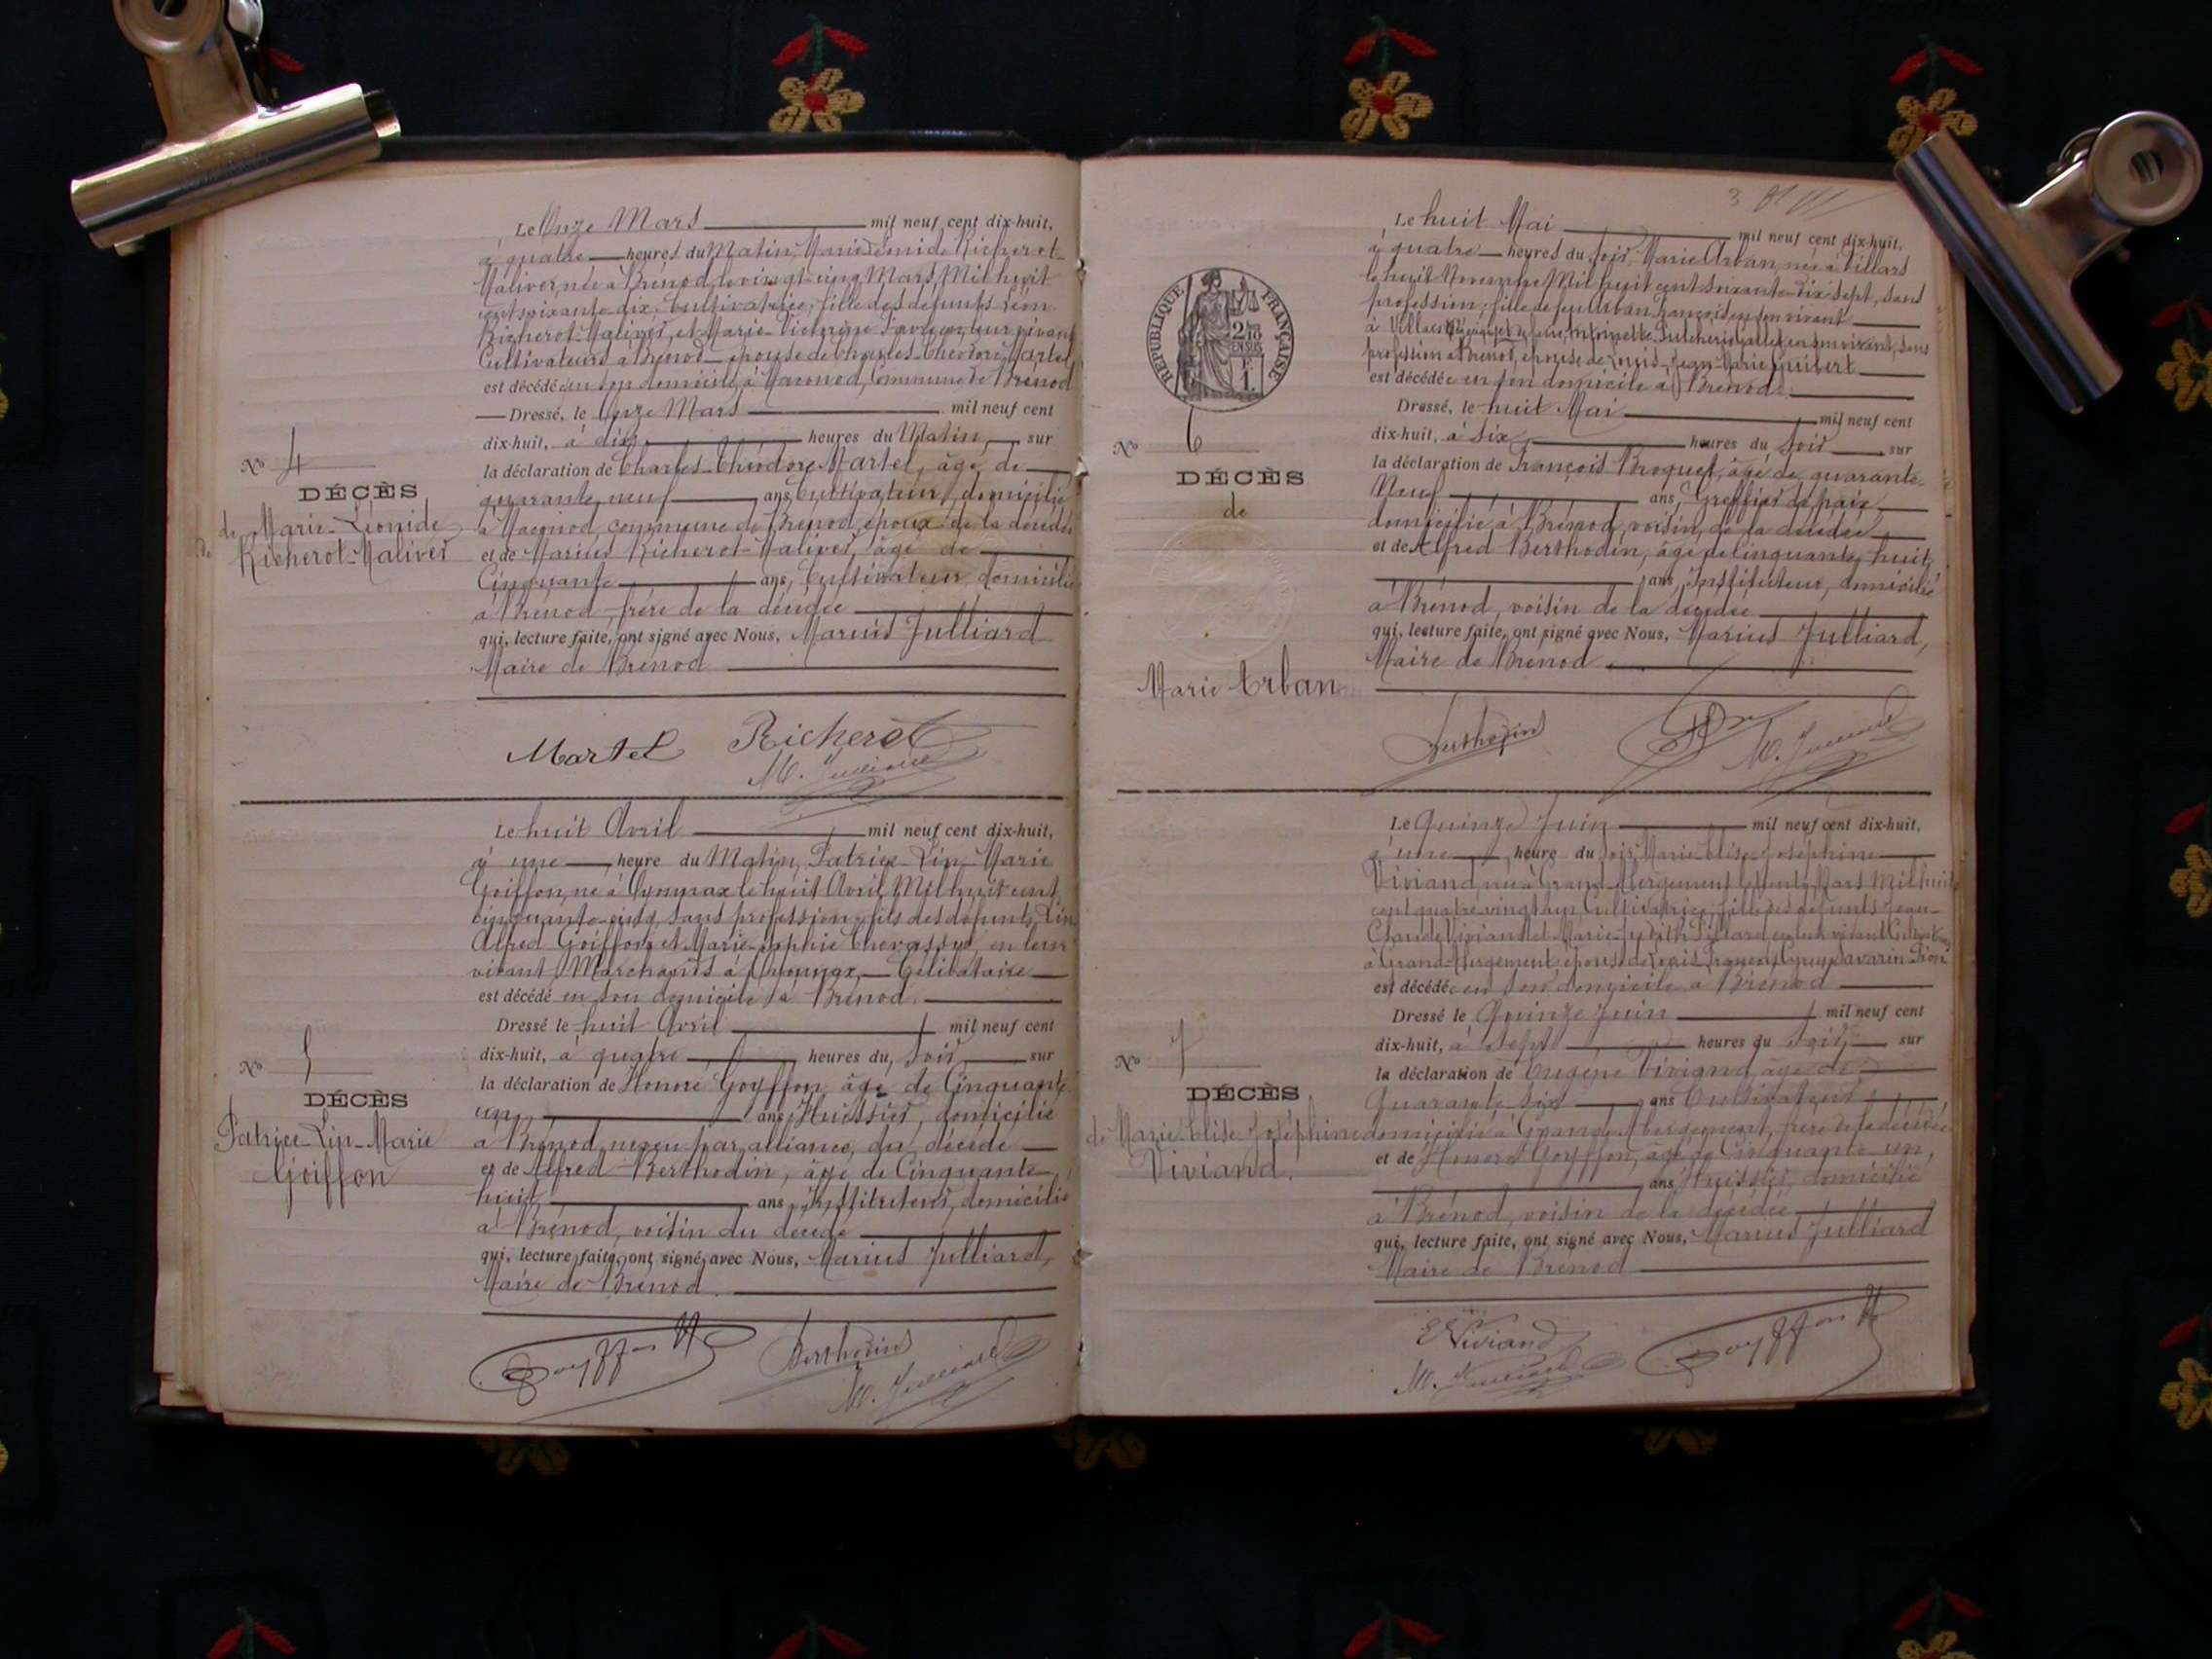 Le Onze Mars mil neuf cent dix-huit,
à quatre heures du Matin, Marie Léonide Richerot-
Maliver, née à Brénod, le vingt-cinq Mars Mil huit
cent soixante-dix, Cultivatrice, fille des défunts Léon
Richerot-Maliver, et Marie-Victorine en leur vivant
Cultivateurs à Brénod épouse de Charles-Théodore Martel,
est décédée en son domicile, à Macconod, Commune de Brénod
Dressé, le Onze Mars mil neuf cent
dix-huit, à dix heures du Matin, sur
la déclaration de Charles-Théodore Martel, âgé de
quarante neuf ans, Cultivateur, domicilié
à Macconod, commune de Brénod, époux de la décédée
et de Marius Richerot-Maliver, âgé de
Cinquante ans, Cultivateur, domicilié
à Brénod, frère de la décédée
qui, lecture faite, ont signé avec Nous, Marius Julliard
Maire de Brénod
No 4
DÉCÈS
de Marie-Léonide
Richerot-Maliver
Martel Richerot
M. Julliard
Le huit Avril mil neuf cent dix-huit,
à une heure du Matin, Patrice-Lin-Marie
Goiffon, né à Oyonnax le huit Avril Mil huit cent
cinquante-cinq, sans profession, fils des défunts Lin
Alfred Goiffon, et Marie-Sophie Chevassus, en leur
vivant Marchands à Oyonnax, Célibataire
est décédé en son domicile à Brénod.
Dressé le huit Avril mil neuf cent
dix-huit, à quatre heures du, Soir, sur
la déclaration de Honoré Goyffon, âgé de Cinquante
un, ans, Huissier, domicilié
à Brénod, neveu par alliance, du décédé
et de Alfred Berthodin, âgé de Cinquante
huit, ans, Instituteur, domicilié
à Brénod, voisin du décédé
qui, lecture faite, ont signé, avec Nous, Marius Julliard,
Maire de Brénod.
No 5
DÉCÈS
Patrice-Lin-Marie
Goiffon
Goyffon H Berthodin
M. Julliard
3
Le huit Mai mil neuf cent dix-huit,
à quatre heures du Soir, Marie Arban, née à Villars
le huit Novembre Mil huit cent soixante-dix-sept, sans
profession, fille de feu Arban François en son vivant
à Villars et de feue Antoinette Pulchérie Gallet en son vivant, sans
profession à Brénod, épouse de Louis-Jean-Marie Guibert
est décédée en son domicile à Brénod.
Dressé, le huit Mai mil neuf cent
dix-huit, à six, heures du Soir sur
la déclaration de François Broquet, âgé de quarante
Neuf ans, Greffier de paix,
domicilié à Brénod, voisin, de la décédée
et de Alfred Berthodin, âgé de Cinquante huit,
ans, Instituteur, domicilié
à Brénod, voisin de la décédée
qui, lecture faite, ont signé avec Nous, Marius Julliard,
Maire de Brénod
RÉPUBLIQUE FRANÇAISE
2/10
EN SUS
F.
1.
No 6
DÉCÈS
de
Marie Arban
Berthodin
M. Julliard
Le Quinze Juin mil neuf cent dix-huit,
à une heure du Soir, Marie-Elise-Joséphine
Viviand, née à Grand-Abergement le trente Mars Mil huit
cent quatre-vingt un, Cultivatrice, fille des défunts Jean-
Claude Viviand et Marie-Judith Pillard en leur vivant Cultivateurs
à Grand-Abergement, épouse de Louis François Savarin-Pion
est décédée en son domicile à Brénod
Dressé le Quinze Juin mil neuf cent
dix-huit, à Sept heures du Soir, sur
la déclaration de Eugène Viviand, âgé de
Quarante Six ans Cultivateur
domicilié à Grand-Abergement, frère de la décédée
et de Honoré Goyffon, âgé de Cinquante un,
ans Huissier, domicilié
à Brénod, voisin de la décédée
qui, lecture faite, ont signé avec Nous, Marius Julliard
Maire de Brénod
No 7
DÉCÈS
de Marie-Elise-Joséphine
Viviand.
E Viviand Goyffon H
M. Julliard